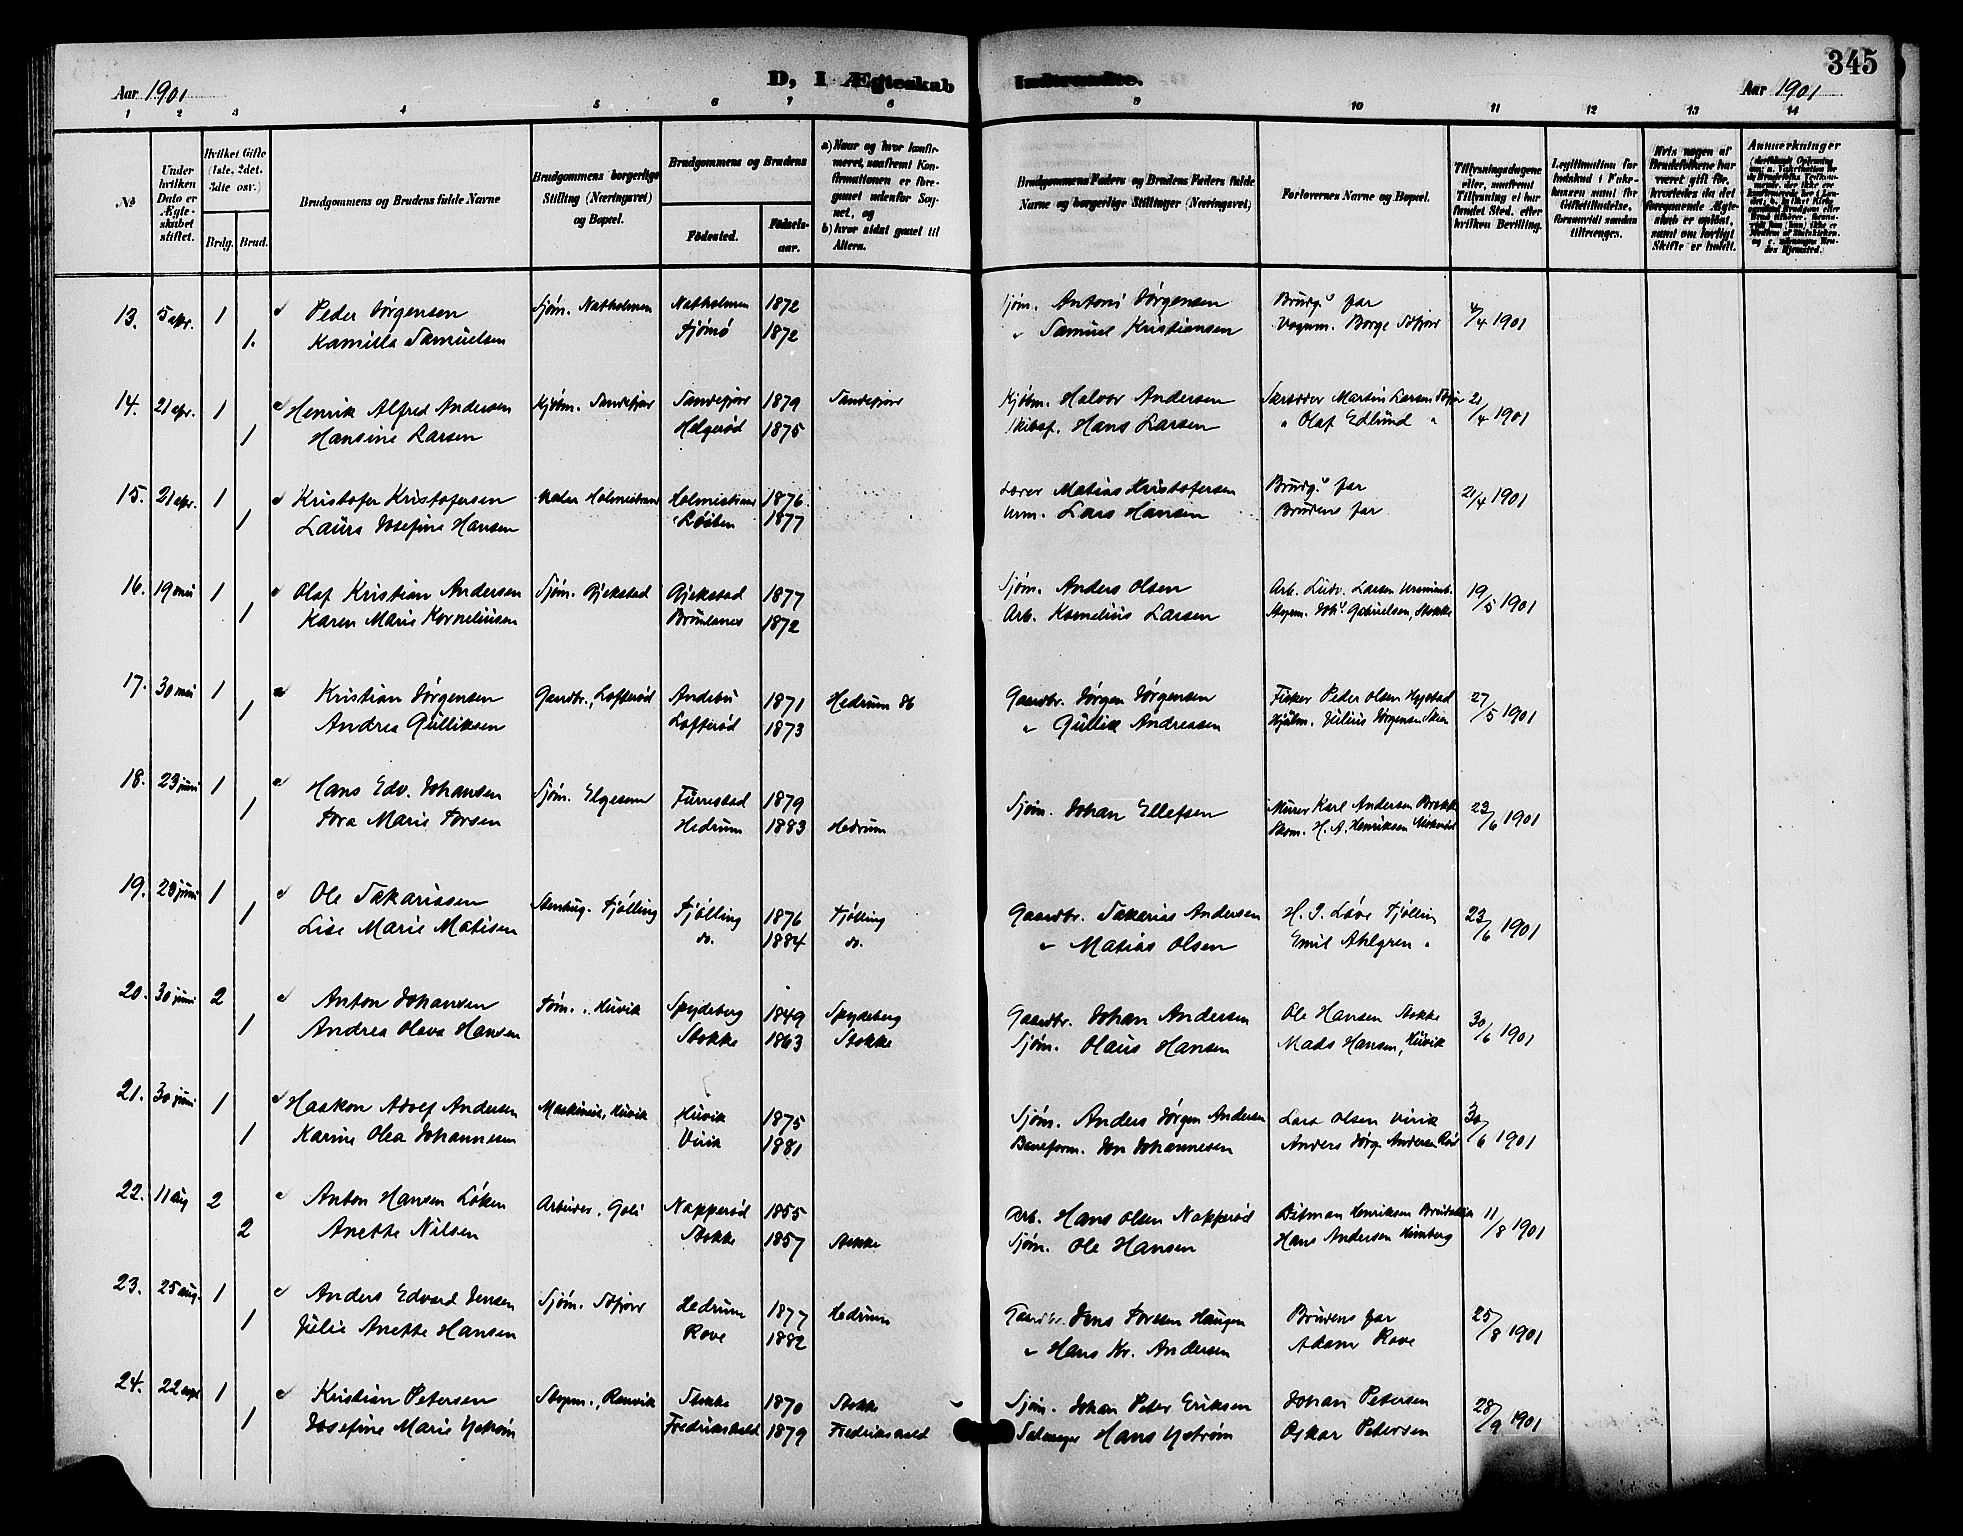 345
D, I Ægteskab Indtraadte.
Aar 1901
Aar 1901
1 2 3 4 5 6 7 8 9 10 11 12 13 14
№
Under hvilken Dato er Ægteskabet stiftet.
Hvilket Gifte (1ste, 2det, 3die osv.)
Brdg. Brud.
Brudgommens og Brudens fulde Navne
Brudgommens borgerlige Stilling (Næringsvei) og Bopæl.
Brudgommens og Brudens
Fødested. Fødsels-aar.
a) Naar og hvor konfirmeret, saafremt Konfirmationen er foregaaet udenfor Sognet, og
b) hvor sidst gaaet til Alters.
Brudgommens Faders og Brudens Faders fulde Navne og borgerlige Stillinger (Næringsvei)
Forlovernes Navne og Bopæl.
Tillysningsdagene eller, saafremt Tillysning ei har fundet Sted, efter hvilken Bevilling.
Legitimation for Indskud i Enkekassen samt for Giftetilladelse, forsaavidt saadan tiltrænges.
Hvis nogen af Brudefolkene har været gift før, hvorledes da det foregaaende Ægteskab er opløst, samt om lovligt Skifte er holdt.
Anmerkninger
13. 5 apr. 1 Peder Jørgensen Sjøm. Natholmen Natholmen 1872 Sjøm. Antoni Jørgensen Brudg.s far 4/4 1901
1. Kamilla Samuelsen Tjømø 1872 " Samuel Kristiansen Vognm. Borge Sfjor
14. 21 apr. 1 Henrik Alfred Andersen Kjøbm. Sandefjor Sandefjor 1879 Sandefjor Kjøbm. Halvor Andersen Skrædder Martin Larsen Sfjor 21/4 1901
1 Hansine Larsen Helgerød 1875 Skibsf. Hans Larsen " Olaf Edlund "
15. 21 apr. 1 Kristofer Kristofersen Maler Holmestrand Holmestrand 1876 Lærer Matias Kristofersen Brudg.s far 21/4 1901
1 Laura Josefine Hansen Løiten 1877 Urm. Lars Hansen Brudens far
16. 19 mai 1 Olaf Kristian Andersen Sjøm. Gjekstad Gjekstad 1877 Sjøm. Anders Olsen Arb. Ludv. Larsen 19/5 1901
1 Karen Marie Korneliusen Brunlanes 1872 Arb. Kornelius Larsen Styrm. Joh.s Gabrielsen, Stokke
17. 30 mai 1 Kristian Jørgensen Gaardbr., Lofterød Andebu 1871 Hedrum 86 Gaardbr. Jørgen Jørgensen Fisker Peder Olsen Hystad 27/5 1901
1 Andrea Gulliksen Lofterød 1873 " Gullik Andreasen Julius Jørgensen
18. 23 juni 1 Hans Edv. Johansen Sjøm. Elgesem Furrestad 1879 Sjøm. Johan Ellefsen Murer Karl Andersen 23/6 1901
1 Tora Marie Torsen Hedrum 1883 Hedrum Skom. H. A. Henriksen
19. 23 juni 1 Ole Sakariasen Stenhug. Tjølling Tjølling 1876 Tjølling Gaardbr. Sakarias Andersen H. J. Løve Tjølling 23/6 1901
1 Lise Marie Matisen do. 1884 do. " Matias Olsen Emil Ahlgren "
20. 30 juni 2 Anton Johansen Tøm., Huvik Spydeberg 1849 Spydeberg Gaardbr. Johan Andersen Ole Hansen Stokke 30/6 1901
1 Andrea Olava Hansen Stokke 1863 Stokke Sjøm. Olaus Hansen Mads Hansen, Huvik
21. 30 juni 1 Haakon Adolf Andersen Maskinist, Huvik Huvik 1875 Sjøm. Anders Jørgen Andersen Lars Olsen Virik 30/6 1901
1 Karine Olea Johannesen Virik 1881 Baneform. Jon Johannesen Anders Jørg. Andersen Rød
22. 11 aug 2 Anton Hansen Løken Arbeider, Goli Napperød 1855 Arb. Hans Olsen Napperød Henriksen 11/8 1901
2 Anette Nilsen Stokke 1857 Stokke Sjøm. Ole Hansen Hans Andersen Himberg
23. 25 aug. 1 Anders Edvard Jensen Sjøm. Sfjor Hedrum 1877 Hedrum Gaardbr. Jens Torsen Haugen Brudens far 25/8 1901
1 Julie Anette Hansen Rove 1882 " Hans Kr. Andersen Adam Rove
24. 22 sept 1 Kristian Petersen Styrm., Ranvik Stokke 1870 Stokke Sjøm. Johan Peter Eriksen Johan Petersen 28/9 1901
1 Josefine Marie Ystrøm Fredrikshald 1879 Fredrikshald Hans Ystrøm Oskar Petersen